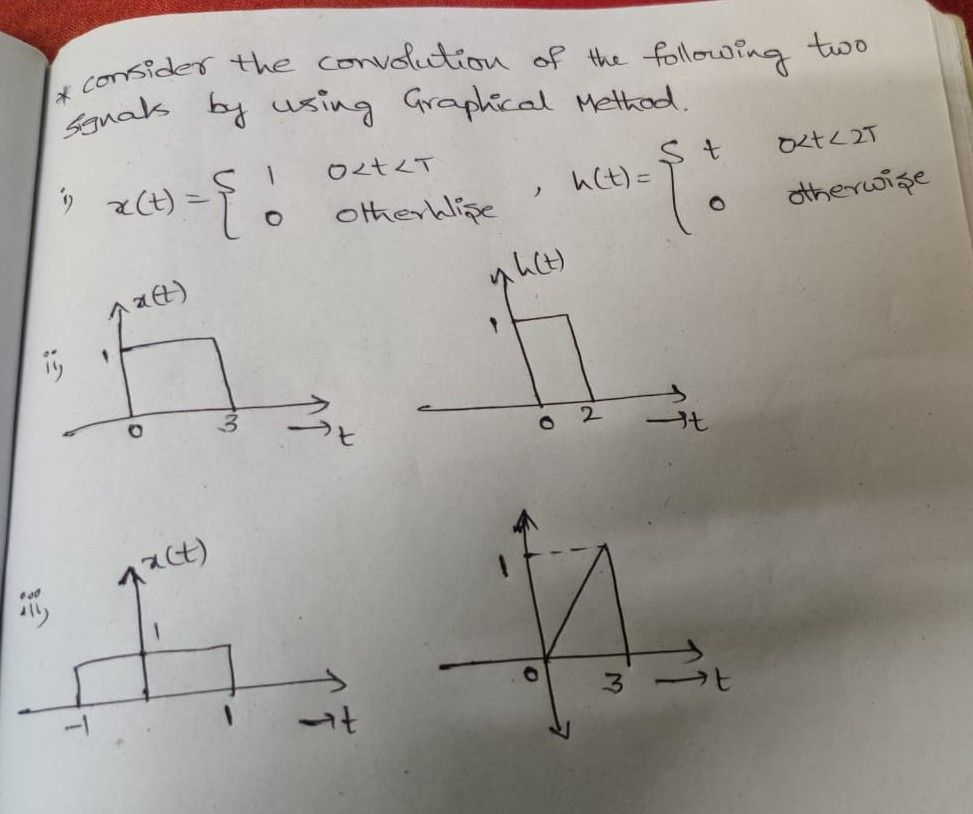 * consider the convolution of the following two
signals by using Graphical Method.
i) x(t) = { 1 0<t<T , h(t) = { t 0<t<2T
0 otherwise 0 otherwise
x(t) h(t)
ii) 1 1
0 3 →t 0 2 →t
iii) x(t)
1 1
-1 1 →t 0 3 →t